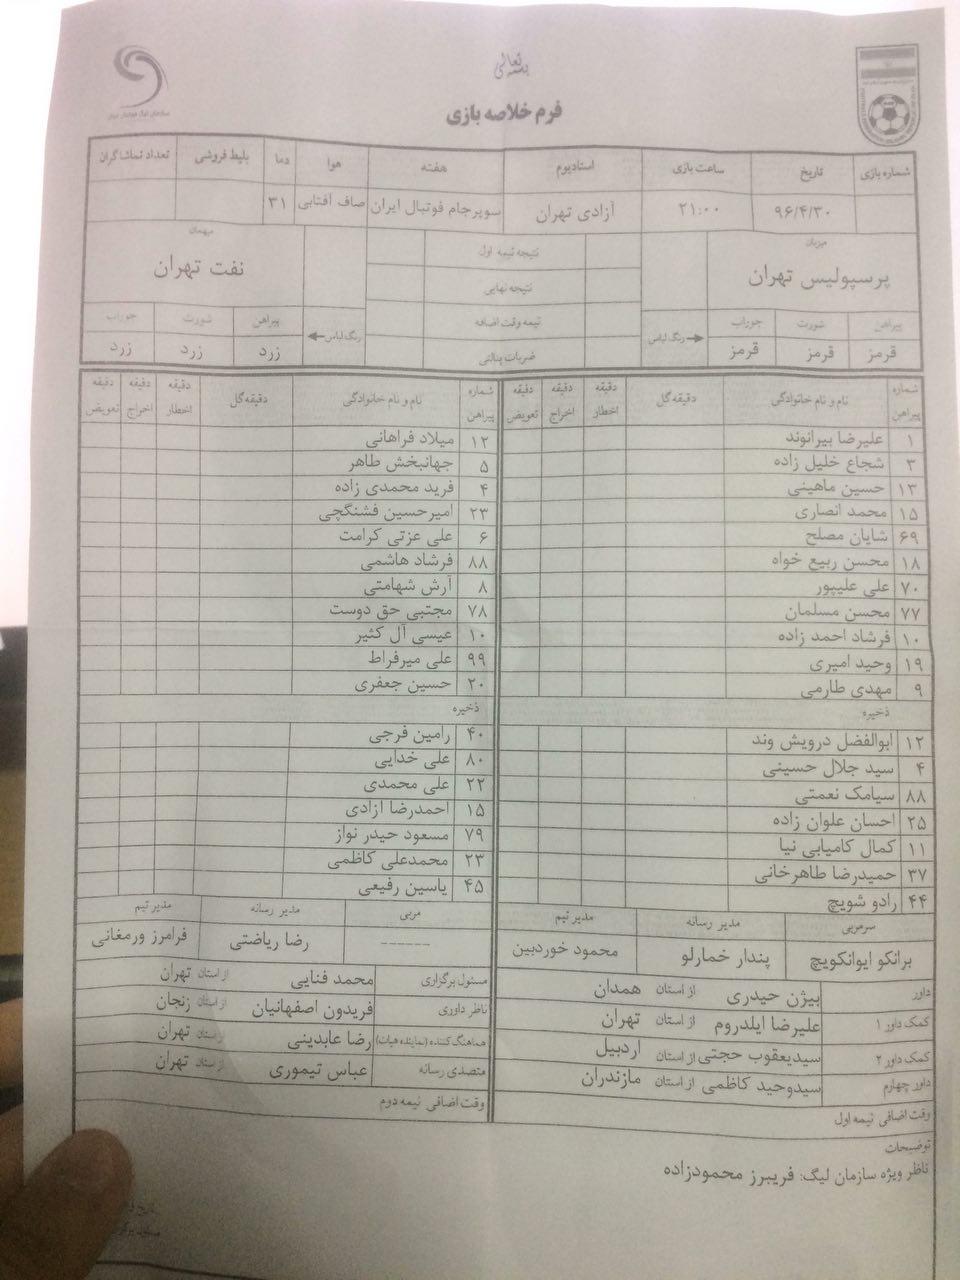 بسمه تعالی
فرم خلاصه بازی
شماره بازی تاریخ ساعت بازی استادیوم هفته هوا دما بلیط فروشی تعداد تماشاگران
۹۶/۴/۳۰ ۲۱:۰۰ آزادی تهران سوپرجام فوتبال ایران صاف آفتابی ۳۱
میزبان نتیجه نیمه اول میهمان
پرسپولیس تهران نتیجه نهایی نفت تهران
پیراهن شورت جوراب رنگ لباس نیمه وقت اضافه رنگ لباس پیراهن شورت جوراب
قرمز قرمز قرمز ضربات پنالتی زرد زرد زرد
شماره پیراهن نام و نام خانوادگی دقیقه گل دقیقه اخطار دقیقه اخراج دقیقه تعویض شماره پیراهن نام و نام خانوادگی دقیقه گل دقیقه اخطار دقیقه اخراج دقیقه تعویض
۱ علیرضا بیرانوند ۱۲ میلاد فراهانی
۳ شجاع خلیل زاده ۵ جهانبخش طاهر
۱۳ حسین ماهینی ۴ فرید محمدی زاده
۱۵ محمد انصاری ۲۳ امیرحسین فشنگچی
۶۹ شایان مصلح ۶ علی عزتی کرامت
۱۸ محسن ربیع خواه ۸۸ فرشاد هاشمی
۷۰ علی علیپور ۸ آرش شهامتی
۷۷ محسن مسلمان ۷۸ مجتبی حق دوست
۱۰ فرشاد احمد زاده ۱۰ عیسی آل کثیر
۱۹ وحید امیری ۹۹ علی میرفراط
۹ مهدی طارمی ۲۰ حسین جعفری
ذخیره ذخیره
۱۲ ابوالفضل درویش وند ۴۰ رامین فرجی
۴ سید جلال حسینی ۸۰ علی خدایی
۸۸ سیامک نعمتی ۲۲ علی محمدی
۲۵ احسان علوان زاده ۱۵ احمدرضا ازادی
۱۱ کمال کامیابی نیا ۷۹ مسعود حیدر نواز
۳۷ حمیدرضا طاهرخانی ۲۳ محمدعلی کاظمی
۴۴ رادو شویچ ۴۵ یاسین رفیعی
سرمربی مدیر رسانه مدیر تیم مربی مدیر رسانه مدیر تیم
برانکو ایوانکویچ پندار خمارلو محمود خوردبین ------ رضا ریاضتی فرامرز ورمغانی
داور بیژن حیدری از استان همدان مسئول برگزاری محمد فنایی از استان تهران
کمک داور ۱ علیرضا ایلدروم از استان تهران ناظر داوری فریدون اصفهانیان از استان زنجان
کمک داور ۲ سیدیعقوب حجتی از استان اردبیل هماهنگ کننده (نماینده هیات) رضا عابدینی از استان تهران
داور چهارم سیدوحید کاظمی از استان مازندران متصدی رسانه عباس تیموری از استان تهران
وقت اضافی نیمه اول وقت اضافی نیمه دوم
توضیحات
ناظر ویژه سازمان لیگ: فریبرز محمودزاده